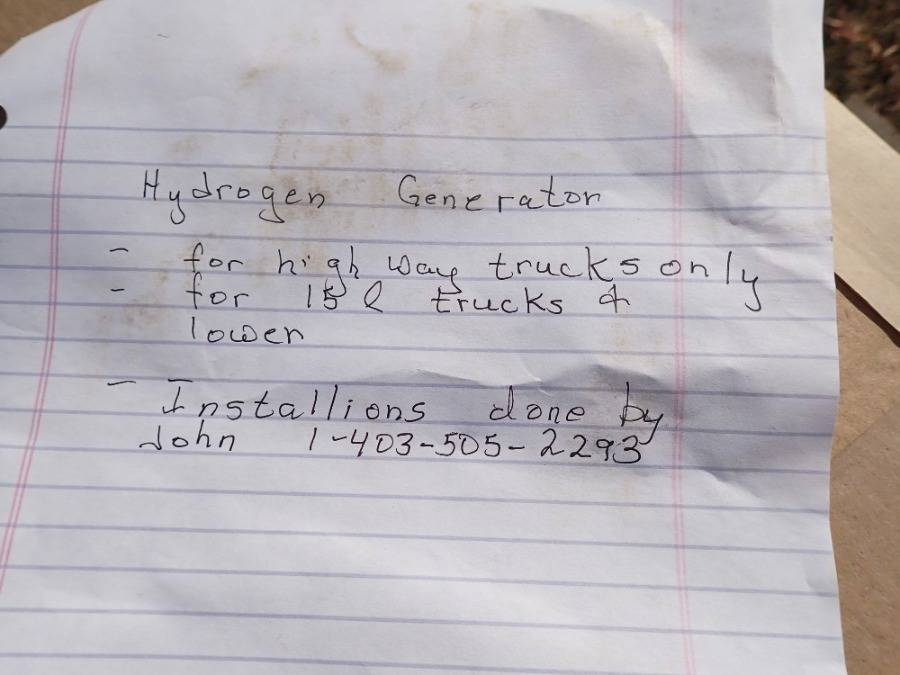 Hydrogen Generator
- for high way trucks only
- for 15 l trucks &
lower
- Installions done by
John 1-403-505-2293